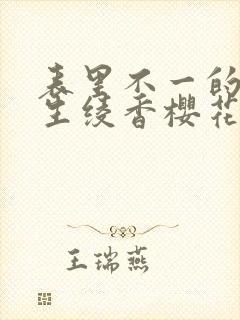 表里不一的
生绫香樱花
王瑞燕